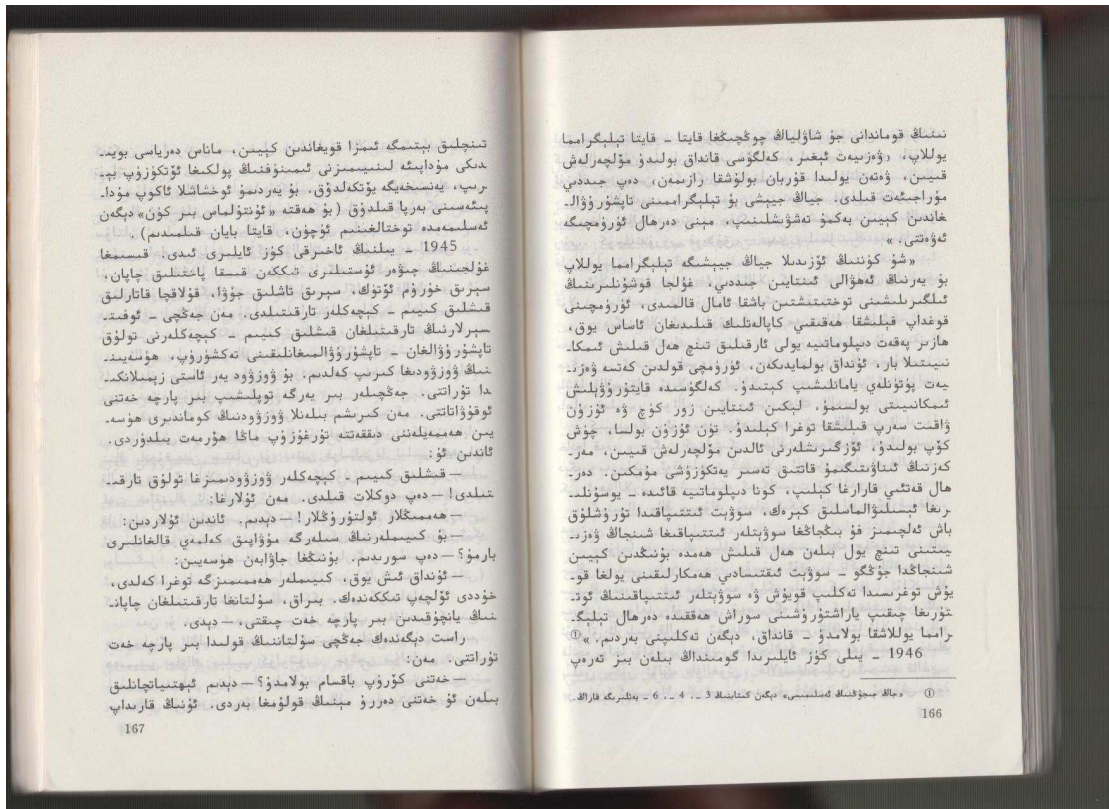 نىنىڭ قوماندانى جۇ شاۋلياڭ چوڭچىڭغا قايتا - قايتا تېلېگرامما
يوللاپ، «ۋەزىيەت ئېغىر، كەلگۈسى قانداق بولىدۇ مۆلچەرلەش
قىيىن، ۋەتەن يولىدا قۇربان بولۇشقا رازىمەن» دەپ جىددىي
مۇراجىئەت قىلدى. جياڭ جيېشى بۇ تېلېگراممىنى تاپشۇرۇۋال-
غاندىن كېيىن بەكمۇ تەشۋىشلىنىپ، مېنى دەرھال ئۈرۈمچىگە
ئەۋەتتى، »
«شۇ كۈننىڭ ئۆزىدىلا جياڭ جيېشىگە تېلېگرامما يوللاپ
بۇ يەرنىڭ ئەھۋالى ئىنتايىن جىددىي، غۇلجا قوشۇنلىرىنىڭ
ئىلگىرىلىشىنى توختىتىشتىن باشقا ئامال قالمىدى، ئۈرۈمچىنى
قوغداپ قېلىشقا ھەقىقىي كاپالەتلىك قىلىدىغان ئاساس يوق،
ھازىر پەقەت دىپلوماتىيە يولى ئارقىلىق تىنچ ھەل قىلىش ئىمكا-
نىيىتىلا بار، ئۇنداق بولمايدىكەن، ئۈرۈمچى قولدىن كەتسە ۋەزى-
يەت پۈتۈنلەي يامانلىشىپ كېتىدۇ. كەلگۈسىدە قايتۇرۇۋېلىش
ئىمكانىيىتى بولسىمۇ، لېكىن ئىنتايىن زور كۈچ ۋە ئۇزۇن
ۋاقىت سەرپ قىلىشقا توغرا كېلىدۇ. تۈن ئۇزۇن بولسا، چۈش
كۆپ بولىدۇ، ئۆزگىرىشلەرنى ئالدىن مۆلچەرلەش قىيىن، مەر-
كەزنىڭ ئىناۋىتىگىمۇ قاتتىق تەسىر يەتكۈزۈشى مۇمكىن. دەر-
ھال قەتئىي قارارغا كېلىپ، كونا دىپلوماتىيە قائىدە - يوسۇنلى-
رىغا ئېسىلىۋالماسلىق كېرەك، سوۋېت ئىتتىپاقىدا تۇرۇشلۇق
باش ئەلچىمىز فۇ بىڭجاڭغا سوۋېتلەر ئىتتىپاقىغا شىنجاڭ ۋەزى-
يىتىنى تىنچ يول بىلەن ھەل قىلىش ھەمدە بۇنىڭدىن كېيىن
شىنجاڭدا جۇڭگو - سوۋېت ئىقتىسادىي ھەمكارلىقىنى يولغا قو-
يۇش توغرىسىدا تەكلىپ قويۇش ۋە سوۋېتلەر ئىتتىپاقىنىڭ ئوت-
تۇرىغا چىقىپ ياراشتۇرۇشىنى سوراش ھەققىدە دەرھال تېلېگ-
رامما يوللاشقا بولامدۇ - قانداق، دېگەن تەكلىپنى بەردىم. »①
1946 - يىلى كۈز ئايلىرىدا گومىنداڭ بىلەن بىر تەرەپ
① «جاڭ جىجۇڭنىڭ ئەسلىمىسى» دېگەن كىتابنىڭ 3 -، 4 -، 6 - بەتلىرىگە قاراڭ.
166
تىنچلىق بېتىمگە ئىمزا قويغاندىن كېيىن، ماناس دەرياسى بويى-
دىكى مۇداپىئە لىنىيىمىزنى ئىمىنۇفنىڭ پولكىغا ئۆتكۈزۈپ بې-
رىپ، يەنسىخەيگە يۆتكەلدۇق. بۇ يەردىمۇ ئوخشاشلا ئاكوپ مۇدا-
پىئەسىنى بەرپا قىلدۇق (بۇ ھەقتە «ئۇنتۇلماس بىر كۈن» دېگەن
ئەسلىمەمدە توختالغىنىم ئۈچۈن، قايتا بايان قىلمىدىم).
1945 - يىلنىڭ ئاخىرقى كۈز ئايلىرى ئىدى. قىسىمغا
غۇلجىنىڭ چىۋەر ئۇستىلىرى تىككەن قىسقا پاختىلىق چاپان،
سېرىق خۇرۇم ئۆتۈك، سېرىق تاشلىق جۇۋا، قۇلاقچا قاتارلىق
قىشلىق كىيىم - كېچەكلەر تارقىتىلدى. مەن جەڭچى - ئوفىت-
سېرلارنىڭ تارقىتىلغان قىشلىق كىيىم - كېچەكلەرنى تولۇق
تاپشۇرۇۋالغان - تاپشۇرۇۋالمىغانلىقىنى تەكشۈرۈپ، ھۈسەيىن-
نىڭ ۋوزۋودىغا كىرىپ كەلدىم. بۇ ۋوزۋود يەر ئاستى زېمىلانكى-
دا تۇراتتى. جەڭچىلەر بىر يەرگە توپلىشىپ بىر پارچە خەتنى
ئوقۇۋاتاتتى. مەن كىرىشىم بىلەنلا ۋوزۋودنىڭ كوماندىرى ھۈسە-
يىن ھەممەيلەننى دىققەتتە تۇرغۇزۇپ ماڭا ھۆرمەت بىلدۈردى.
ئاندىن ئۇ:
— قىشلىق كىيىم - كېچەكلەر ۋوزۋودىمىزغا تولۇق تارقى-
تىلدى! — دەپ دوكلات قىلدى. مەن ئۇلارغا:
— ھەممىڭلار ئولتۇرۇڭلار! — دېدىم. ئاندىن ئۇلاردىن:
— بۇ كىيىملەرنىڭ سىلەرگە مۇۋاپىق كەلمەي قالغانلىرى
بارمۇ؟ — دەپ سورىدىم. بۇنىڭغا جاۋابەن ھۈسەيىن:
— ئۇنداق ئىش يوق، كىيىملەر ھەممىمىزگە توغرا كەلدى،
خۇددى ئۆلچەپ تىككەندەك. بىراق، سۇلتانغا تارقىتىلغان چاپان-
نىڭ يانچۇقىدىن بىر پارچە خەت چىقتى، — دېدى.
راست دېگەندەك جەڭچى سۇلتاننىڭ قولىدا بىر پارچە خەت
تۇراتتى. مەن:
— خەتنى كۆرۈپ باقسام بولامدۇ؟ — دېدىم ئېھتىياتچانلىق
بىلەن ئۇ خەتنى دەررۇ مېنىڭ قولۇمغا بەردى. ئۇنىڭ قارىداپ
167